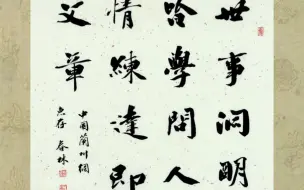 世事洞明
皆學問人
情練達即
文章
中國蘭州網
春林